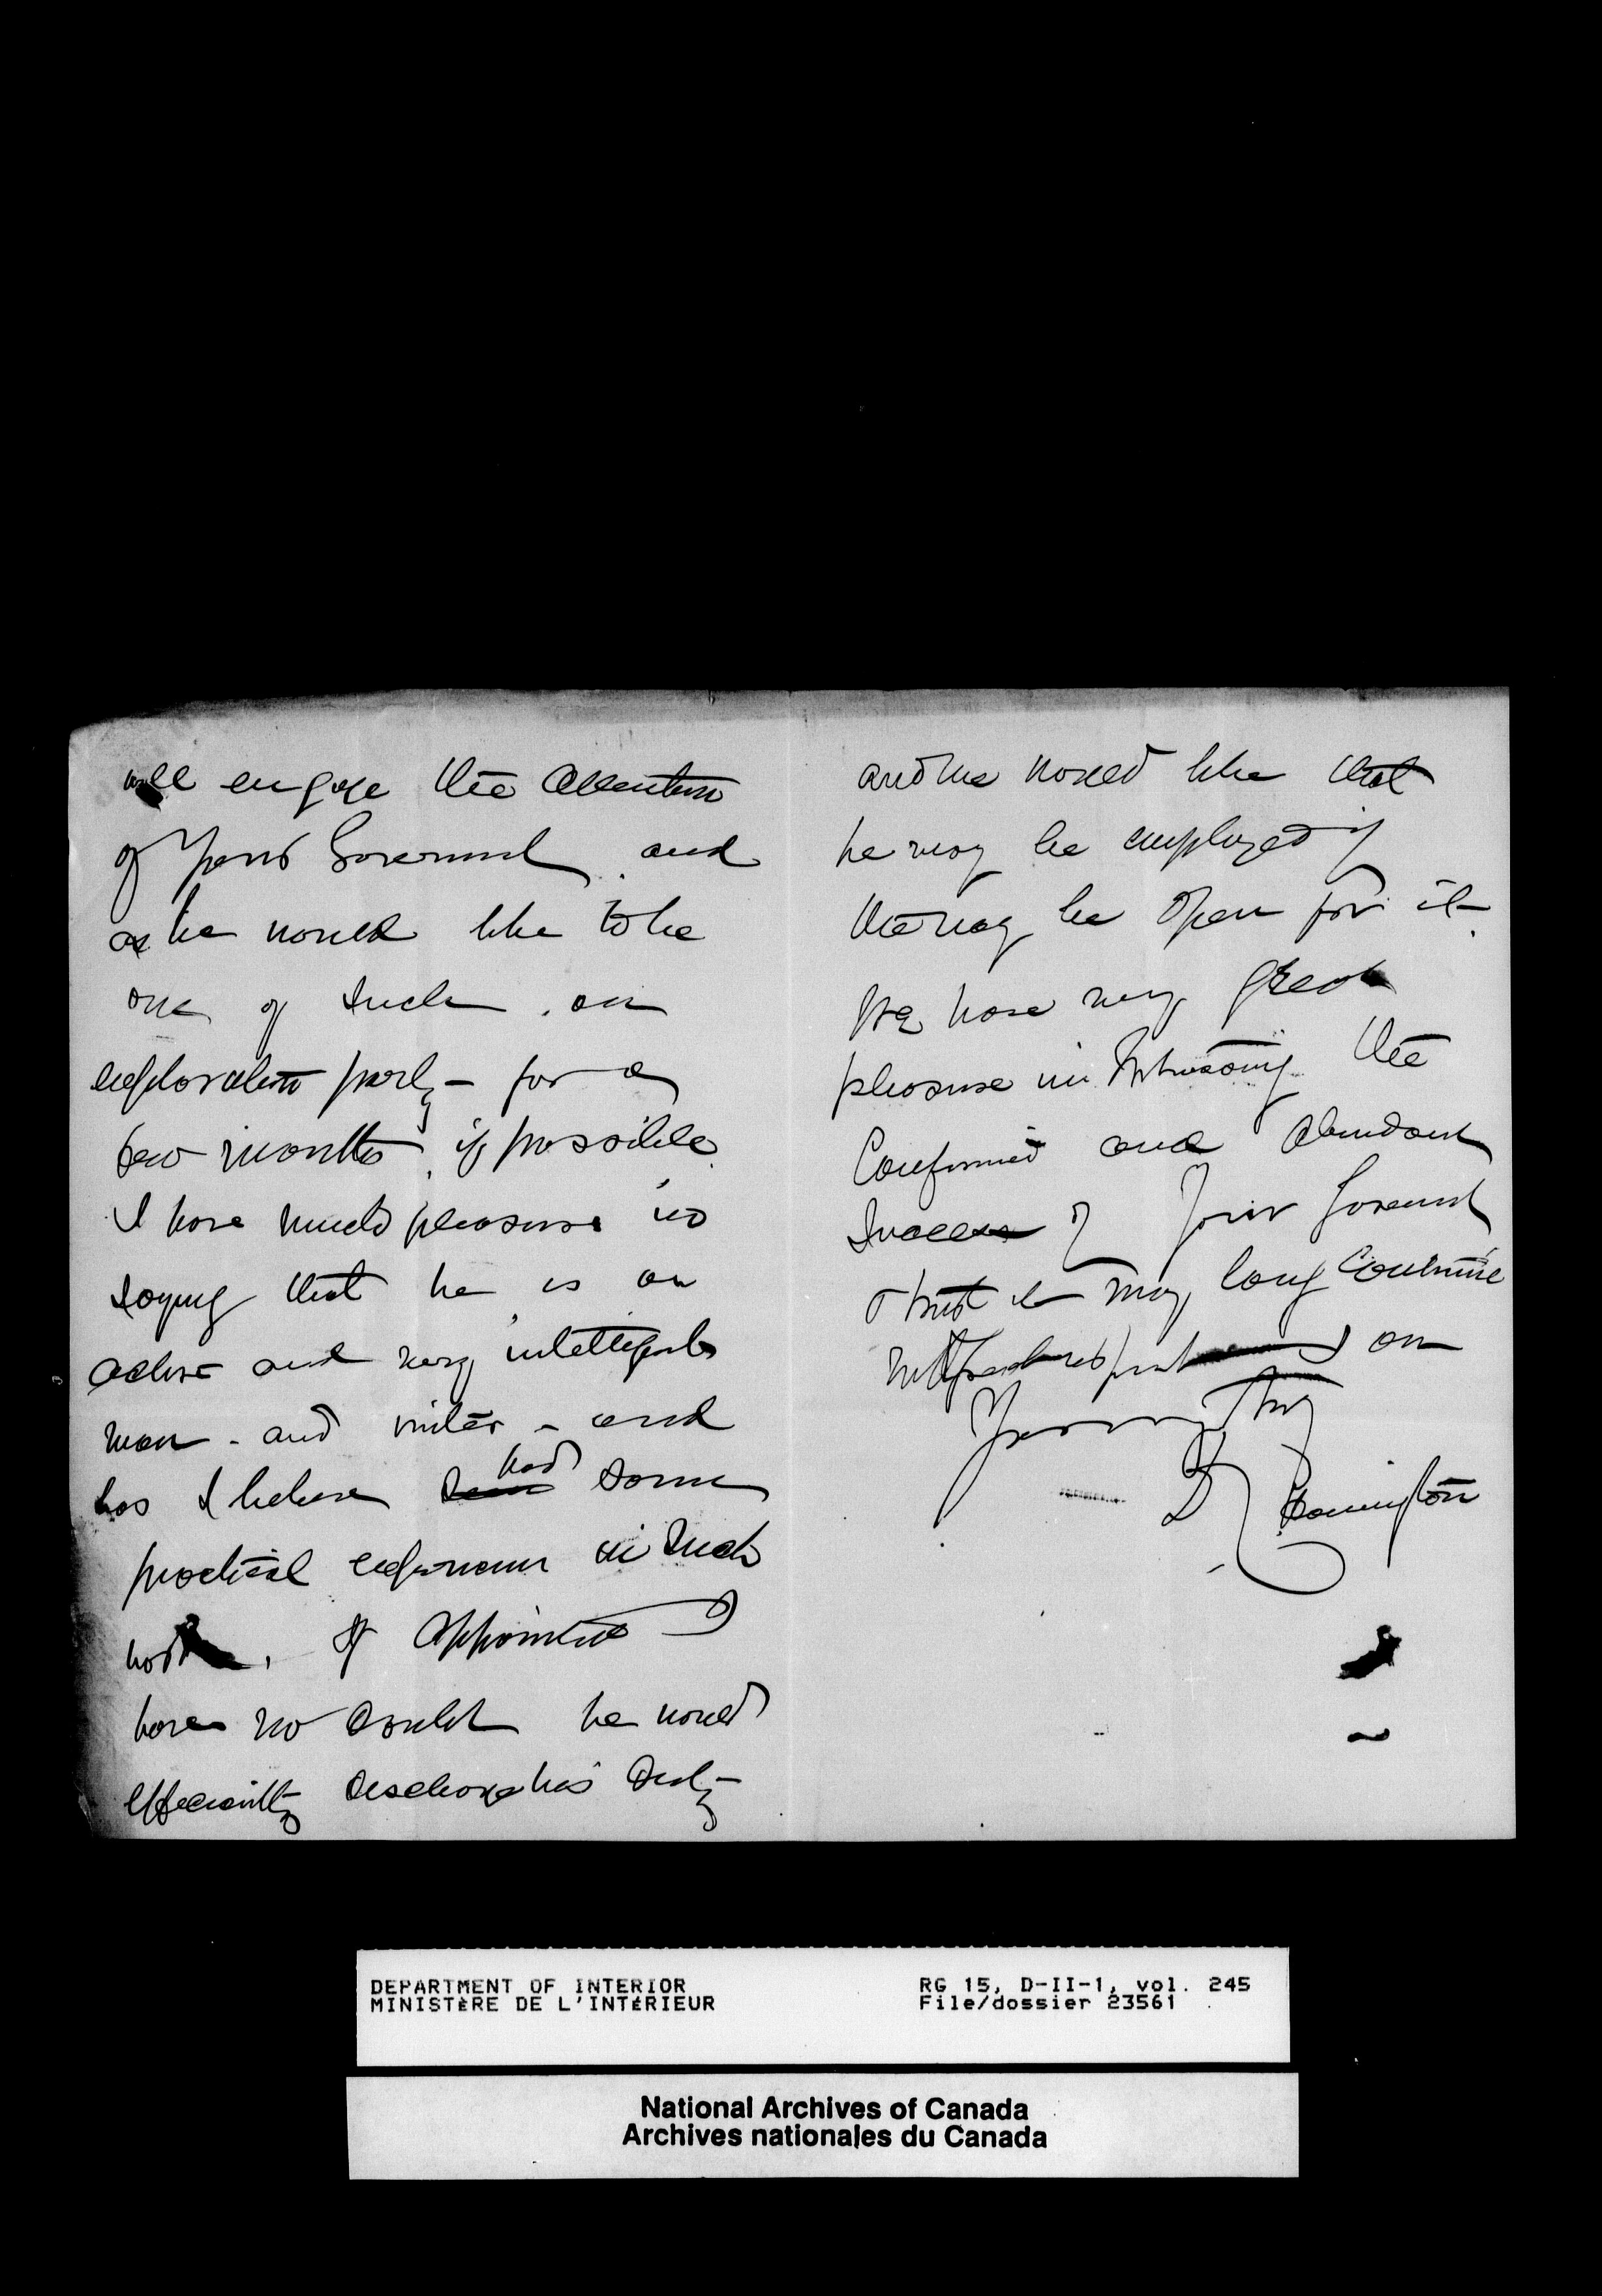 will engage the attention
of your Government and
as he would like to be
one of such an
exploration party - for a
few months, if possible.
I have much pleasure in
saying that he is an
active and very intelligent
man - and writer - and
has I believe had some
practical experience in such
work. If appointed I
have no doubt he would
efficiently discharge his duty
and we would like that
he may be employed if
the way be open for it.
We have very great
pleasure in witnessing the
Confirmed and abundant
Success of Your Government
& trust it may long Continue
on
Yours very truly
D Hanington
DEPARTMENT OF INTERIOR
MINISTÈRE DE L'INTÉRIEUR
RG 15, D-II-1, vol. 245
File/dossier 23561
National Archives of Canada
Archives nationales du Canada